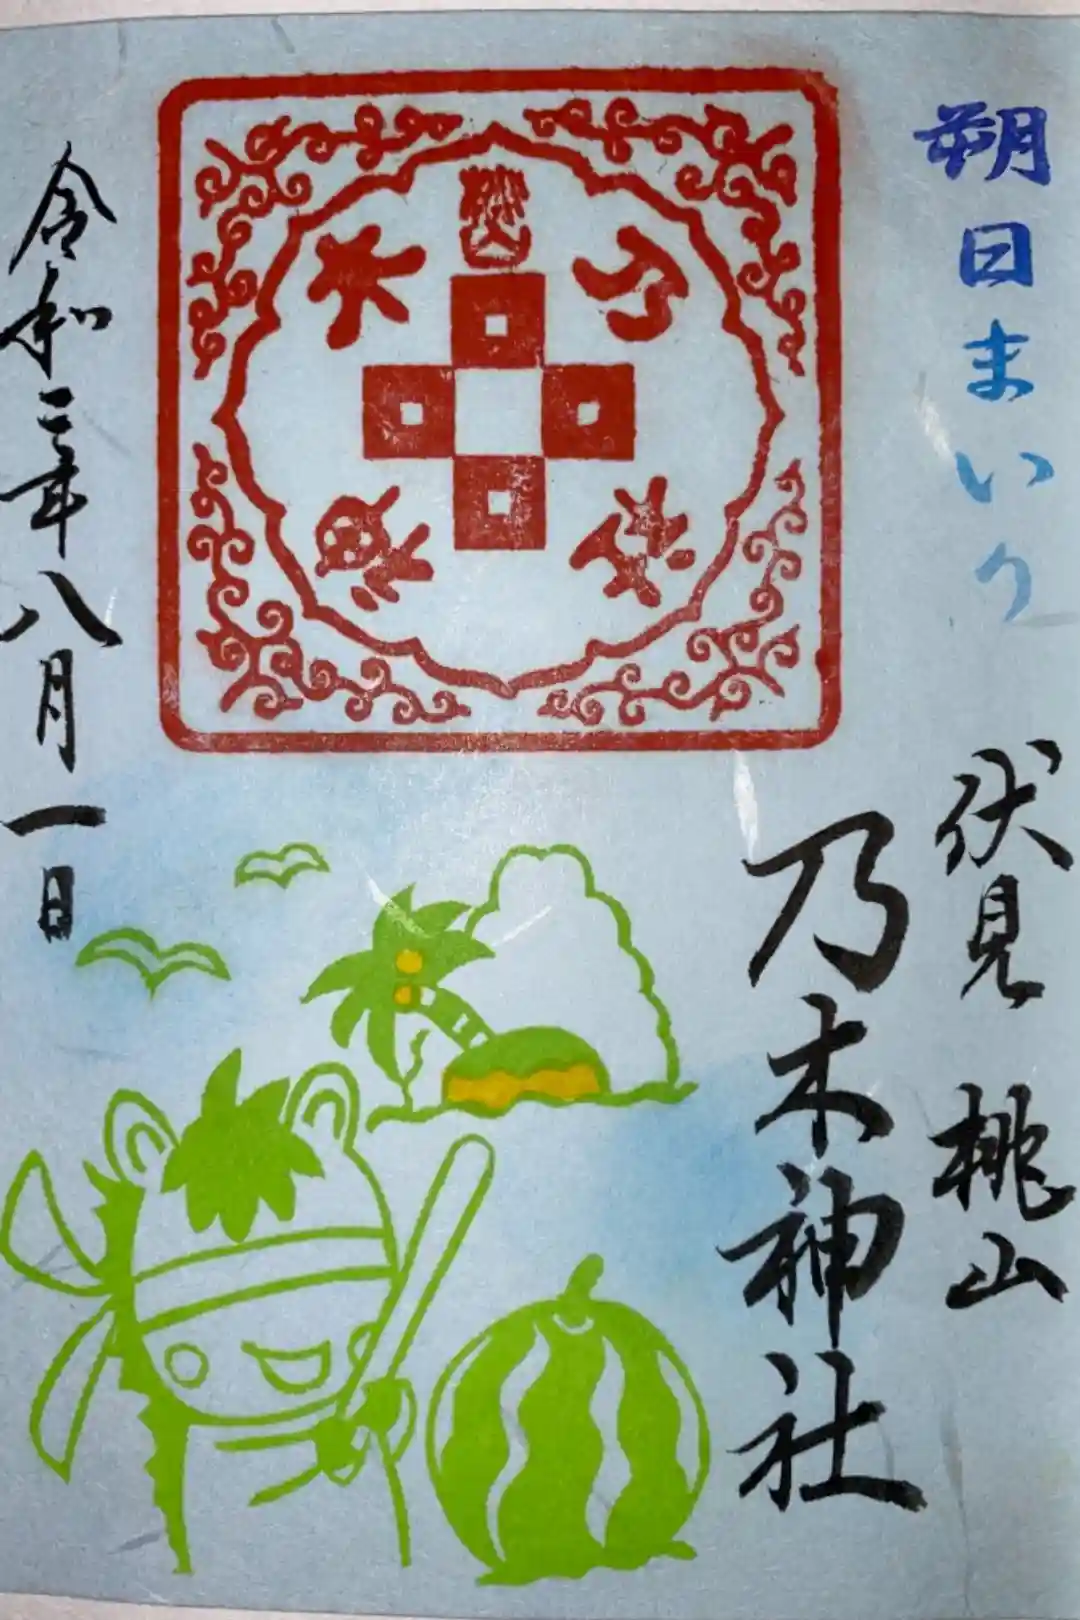 朔日まいり
伏見 桃山
乃木神社
乃木
伏見
令和三年八月一日